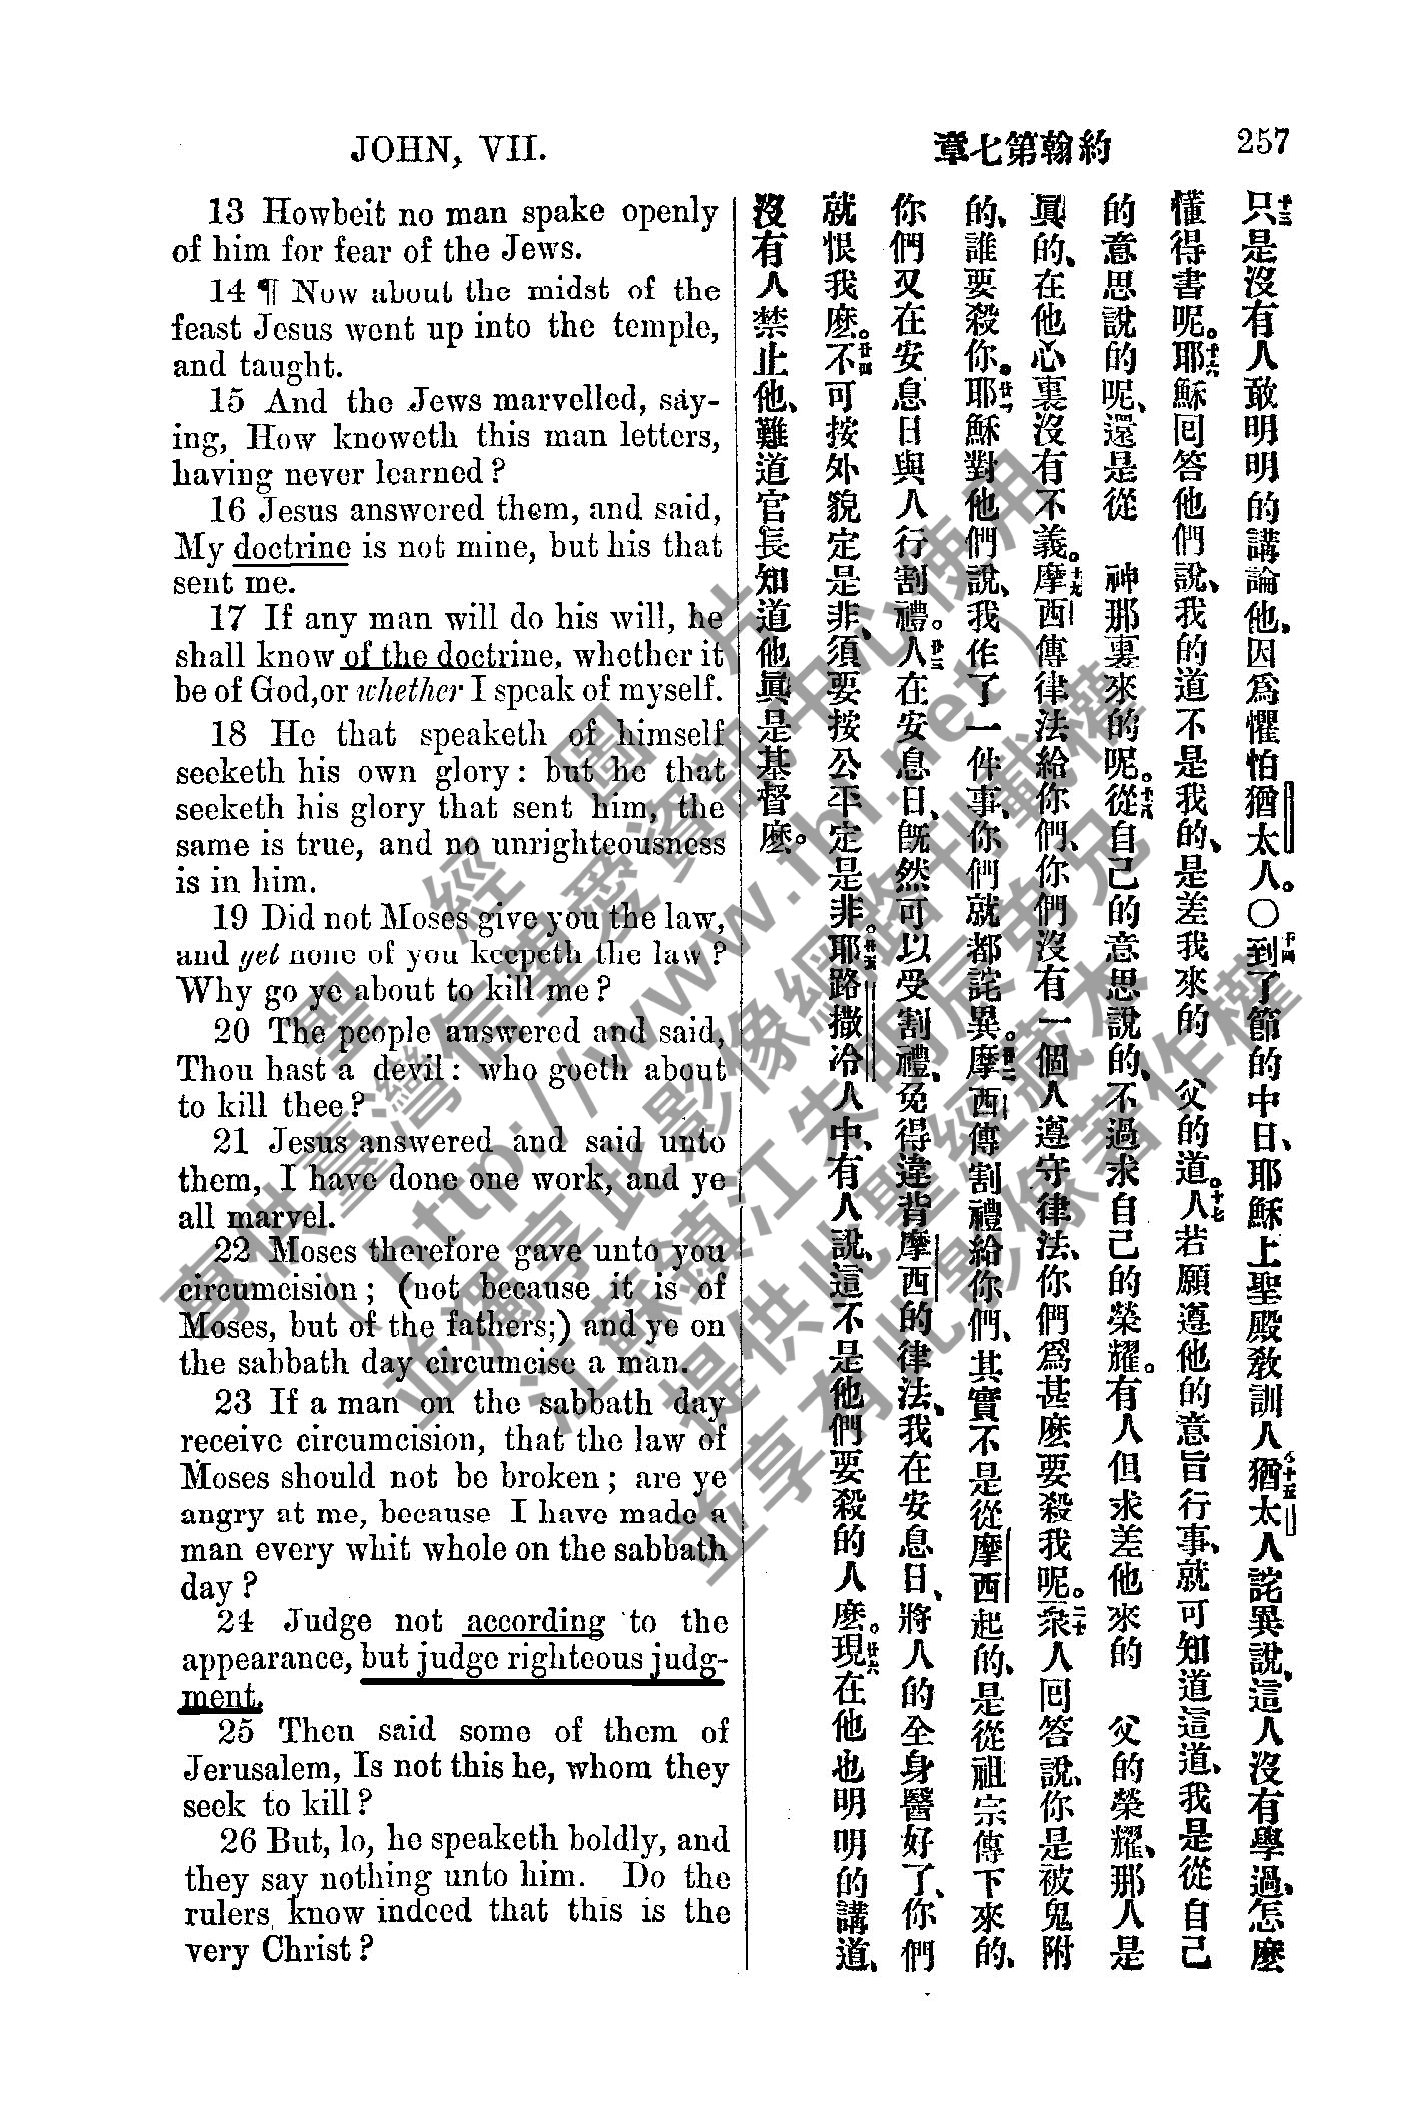 JOHN, VII.
約翰第七章
257
13 Howbeit no man spake openly
of him for fear of the Jews.
14 ¶ Now about the midst of the
feast Jesus went up into the temple,
and taught.
15 And the Jews marvelled, say-
ing, How knoweth this man letters,
having never learned?
16 Jesus answered them, and said,
My doctrine is not mine, but his that
sent me.
17 If any man will do his will, he
shall know of the doctrine, whether it
be of God, or whether I speak of myself.
18 He that speaketh of himself
seeketh his own glory: but he that
seeketh his glory that sent him, the
same is true, and no unrighteousness
is in him.
19 Did not Moses give you the law,
and yet none of you keepeth the law?
Why go ye about to kill me?
20 The people answered and said,
Thou hast a devil: who goeth about
to kill thee?
21 Jesus answered and said unto
them, I have done one work, and ye
all marvel.
22 Moses therefore gave unto you
circumcision; (not because it is of
Moses, but of the fathers;) and ye on
the sabbath day circumcise a man.
23 If a man on the sabbath day
receive circumcision, that the law of
Moses should not be broken; are ye
angry at me, because I have made a
man every whit whole on the sabbath
day?
24 Judge not according to the
appearance, but judge righteous judg-
ment.
25 Then said some of them of
Jerusalem, Is not this he, whom they
seek to kill?
26 But, lo, he speaketh boldly, and
they say nothing unto him. Do the
rulers know indeed that this is the
very Christ?
十三只是沒有人敢明明的講論他、因爲懼怕猶太人。○十四到了節的中日、耶穌上聖殿敎訓人、十五猶太人詫異說、這人沒有學過、怎麽
懂得書呢。十六耶穌回答他們說、我的道不是我的、是差我來的 父的道。十七人若願遵他的意旨行事、就可知道這道、我是從自己
的意思說的呢、還是從 神那裏來的呢。十八從自己的意思說的、不過求自己的榮耀。有人但求差他來的 父的榮耀、那人是
眞的、在他心裏沒有不義。十九摩西傳律法給你們、你們沒有一個人遵守律法、你們爲甚麽要殺我呢。二十衆人回答說、你是被鬼附
的、誰要殺你。廿一耶穌對他們說、我作了一件事、你們就都詫異。廿二摩西傳割禮給你們、其實不是從摩西起的、是從祖宗傳下來的、
你們又在安息日與人行割禮。廿三人在安息日、旣然可以受割禮、免得違背摩西的律法、我在安息日、將人的全身醫好了、你們
就恨我麽。廿四不可按外貌定是非、須要按公平定是非。廿五耶路撒冷人中、有人說、這不是他們要殺的人麽。廿六現在他也明明的講道、
沒有人禁止他、難道官長知道他眞是基督麽。
聖經圖片
專供臺灣信望愛資訊中心使用
( http://www.fhl.net )
並獨享此影像網路刊載權
江蘇鎮江朱明辰弟兄
提供此聖經藏本
並享有此影像著作權